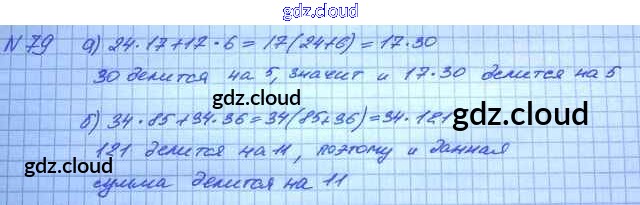 gdz.cloud
N 79 а) 24·17+17·6=17(24+6)=17·30
30 делится на 5, значит и 17·30 делится на 5
gdz.cloud
gdz.cloud
б) 34·85+34·36=34(85+36)=34·121
121 делится на 11, поэтому и данная
gdz.cloud
gdz.cloud
сумма делится на 11